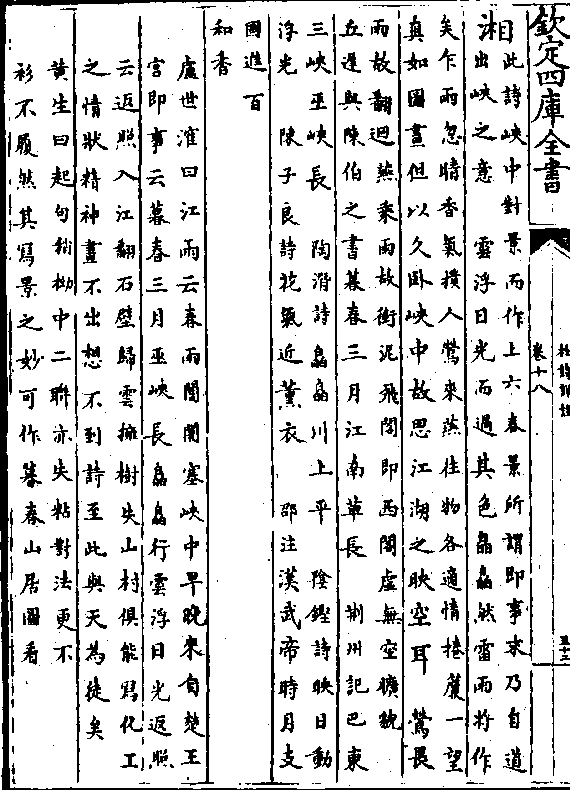 欽定四庫全書
杜詩詳註
卷十八
五十三
湘
此詩峽中對景而作上六春景所謂即事末乃自道
出峽之意 雲浮日光而過其色皛皛然雷雨將作
矣乍雨忽晴香氣撲人鶯來燕往物各適情捲簾一望
真如圖畫但以久卧峽中故思江湖之映空耳 鶯畏
雨故翻迴燕乘雨故銜泥飛閣即西閣虚無空曠貌
丘遲與陳伯之書暮春三月江南草長 荆州記巴東
三峽巫峽長 陶潛詩皛皛川上平 陰鏗詩映日動
浮光 陳子良詩花氣近薰衣 邵注漢武帝時月支
國進百
和香
盧世㴶曰江雨云春雨闇闇塞峽中早晚來自楚王
宫即事云暮春三月巫峽長皛皛行雲浮日光返照
云返照入江翻石壁歸雲擁樹失山村俱能寫化工
之情狀精神畫不出想不到詩至此與天為徒矣
黄生曰起句稍拗中二聯亦失粘對法更不
衫不履然其寫景之妙可作暮春山居圖看